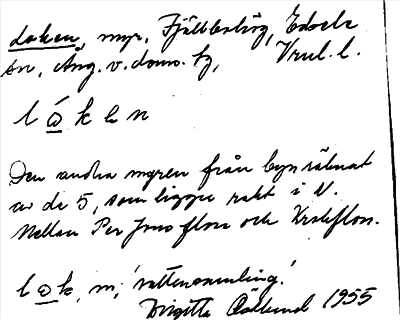 Loken, myr, Fjällbosjö, Edsele
sn, Ång. v. dom. hg,
l ó k e n
Den andra myren från byn räknat
av de 5, som ligger rakt i N.
Mellan Per Jons flon och
l o k, m, 'vattensamling'.
Birgitta 1955